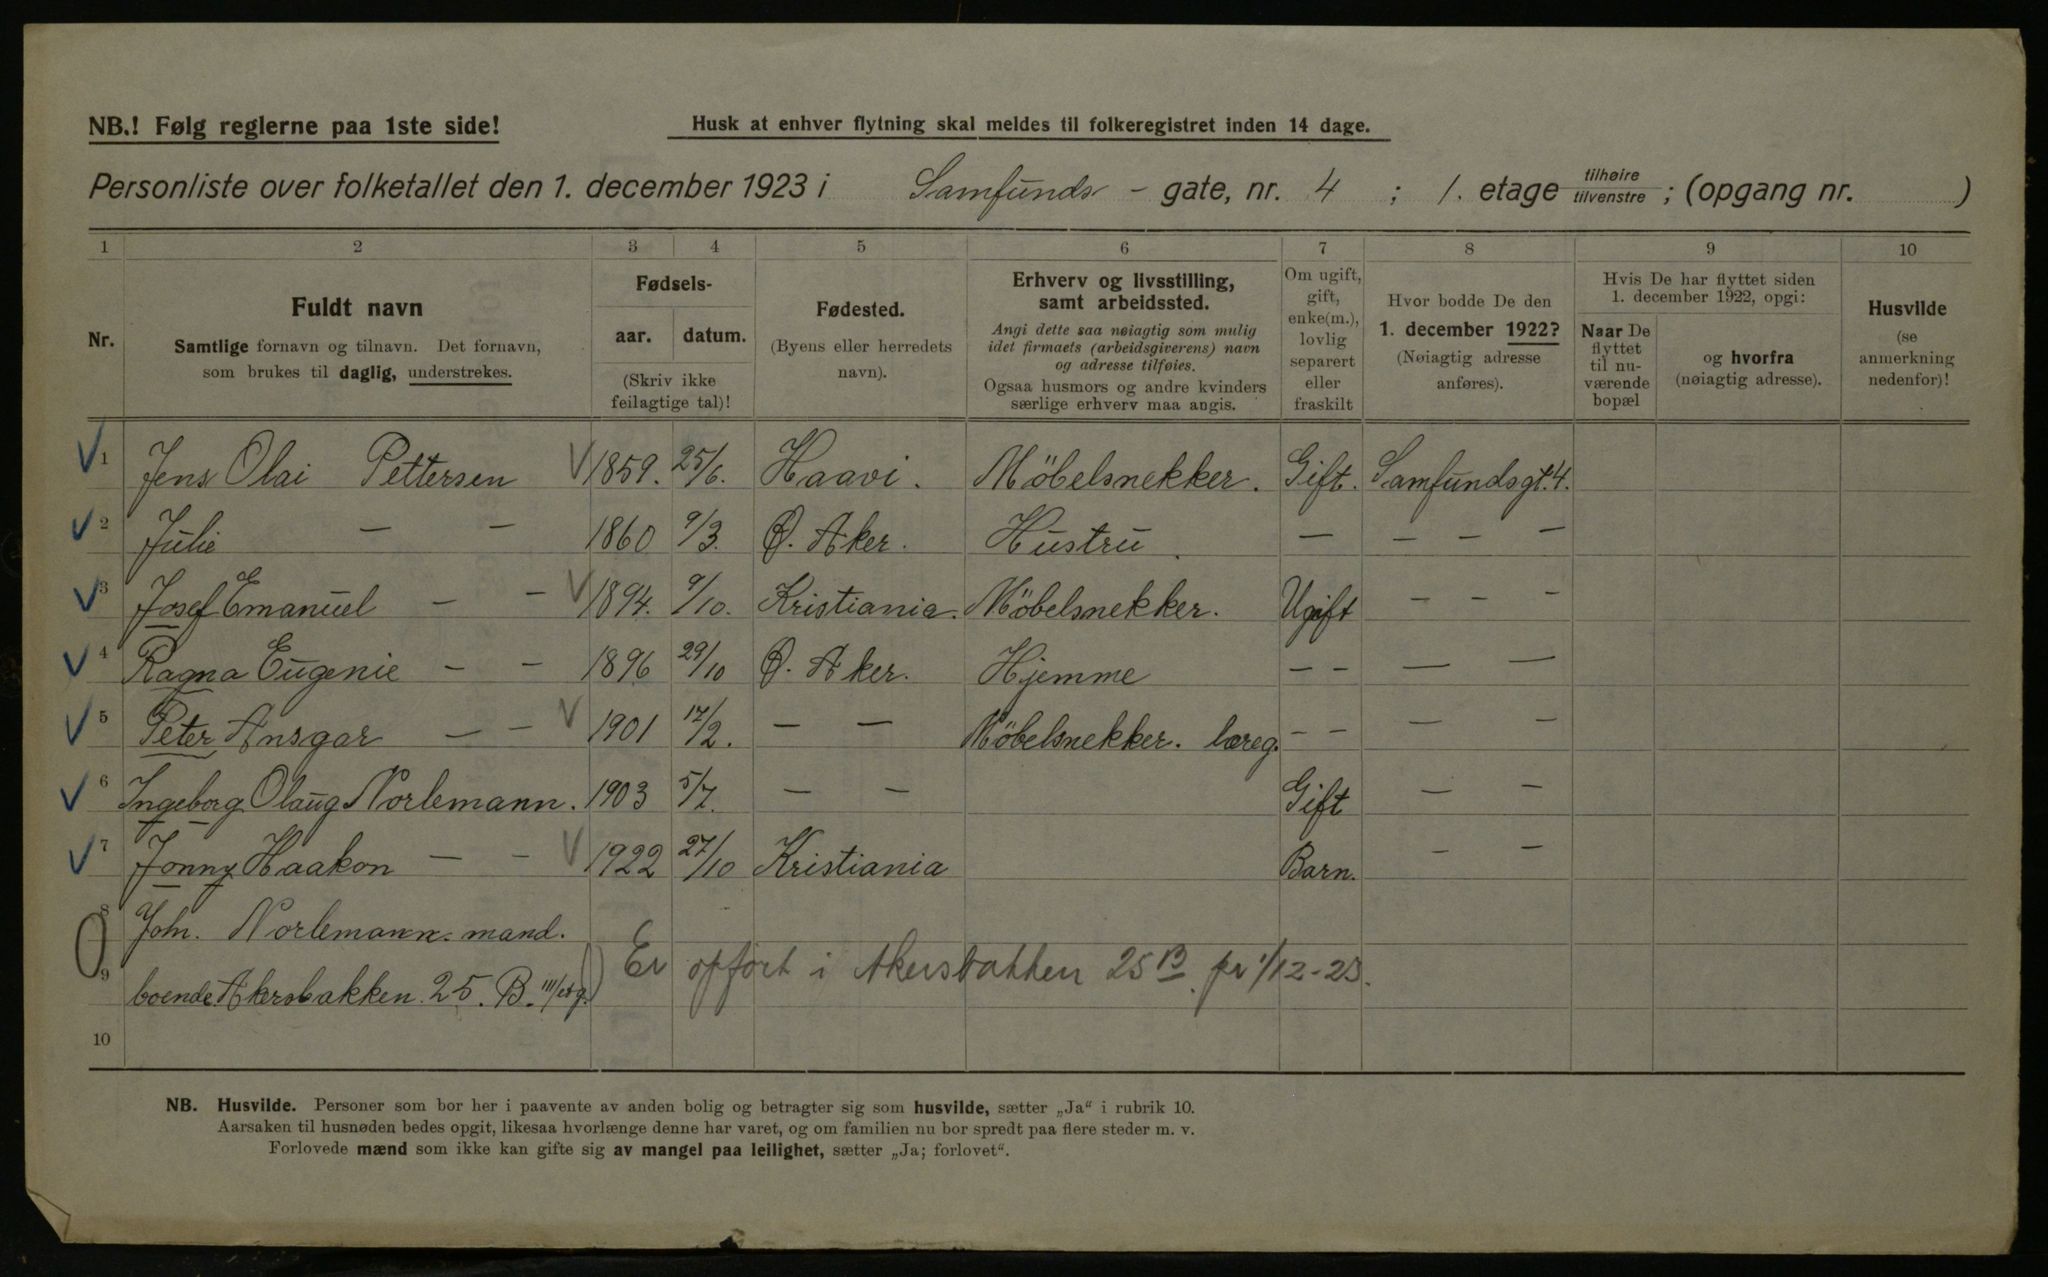 NB.! Følg reglerne paa 1ste side!
Husk at enhver flytning skal meldes til folkeregistret inden 14 dage.
Personliste over folketallet den 1. december 1923 i Samfunds - gate, nr. 4 ; 1. etage tilhøire tilvenstre ; (opgang nr. )
1 2 3 4 5 6 7 8 9 10
Nr.
Fuldt navn
Samtlige fornavn og tilnavn. Det fornavn,
som brukes til daglig, understrekes.
Fødsels-
aar. datum.
(Skriv ikke
feilagtige tal)!
Fødested.
(Byens eller herredets
navn).
Erhverv og livsstilling,
samt arbeidssted.
Angi dette saa nøiagtig som mulig
idet firmaets (arbeidsgiverens) navn
og adresse tilføies.
Ogsaa husmors og andre kvinders
særlige erhverv maa angis.
Om ugift,
gift,
enke(m.),
lovlig
separert
eller
fraskilt
Hvor bodde De den
1. december 1922?
(Nøiagtig adresse
anføres).
Hvis De har flyttet siden
1. december 1922, opgi:
Naar De
flyttet
til nu-
værende
bopæl
og hvorfra
(nøiagtig adresse).
Husvilde
(se
anmerkning
nedenfor)!
1 Jens Olai Pettersen 1859. 25/6. Haavi. Möbelsnekker. Gift. Samfundsgt. 4.
2 Julie — — 1860 9/3. Ø. Aker. Hustru. — — — —
3 Josef Emanuel — — 1894. 9/10. Kristiania. Möbelsnekker. Ugift — — —
4 Ragna Eugenie — — 1896 29/10 Ø. Aker. Hjemme — — — —
5 Peter Ansgar — — 1901 17/2. — — Möbelsnekker. læreg. — — — —
6 Ingeborg Olaug Norlemann. 1903 5/7. — — Gift — —
7 Jonny Haakon — — 1922 27/10 Kristiania Barn. — —
8 Joh. Norlemann. mand.
9 boende Akersbakken 25. B. III/etg. Er opført i Akersbakken 25 B. pr 1/12-23.
10
NB. Husvilde. Personer som bor her i paavente av anden bolig og betragter sig som husvilde, sætter „Ja“ i rubrik 10.
Aarsaken til husnøden bedes opgit, likesaa hvorlænge denne har varet, og om familien nu bor spredt paa flere steder m. v.
Forlovede mænd som ikke kan gifte sig av mangel paa leilighet, sætter „Ja; forlovet“.